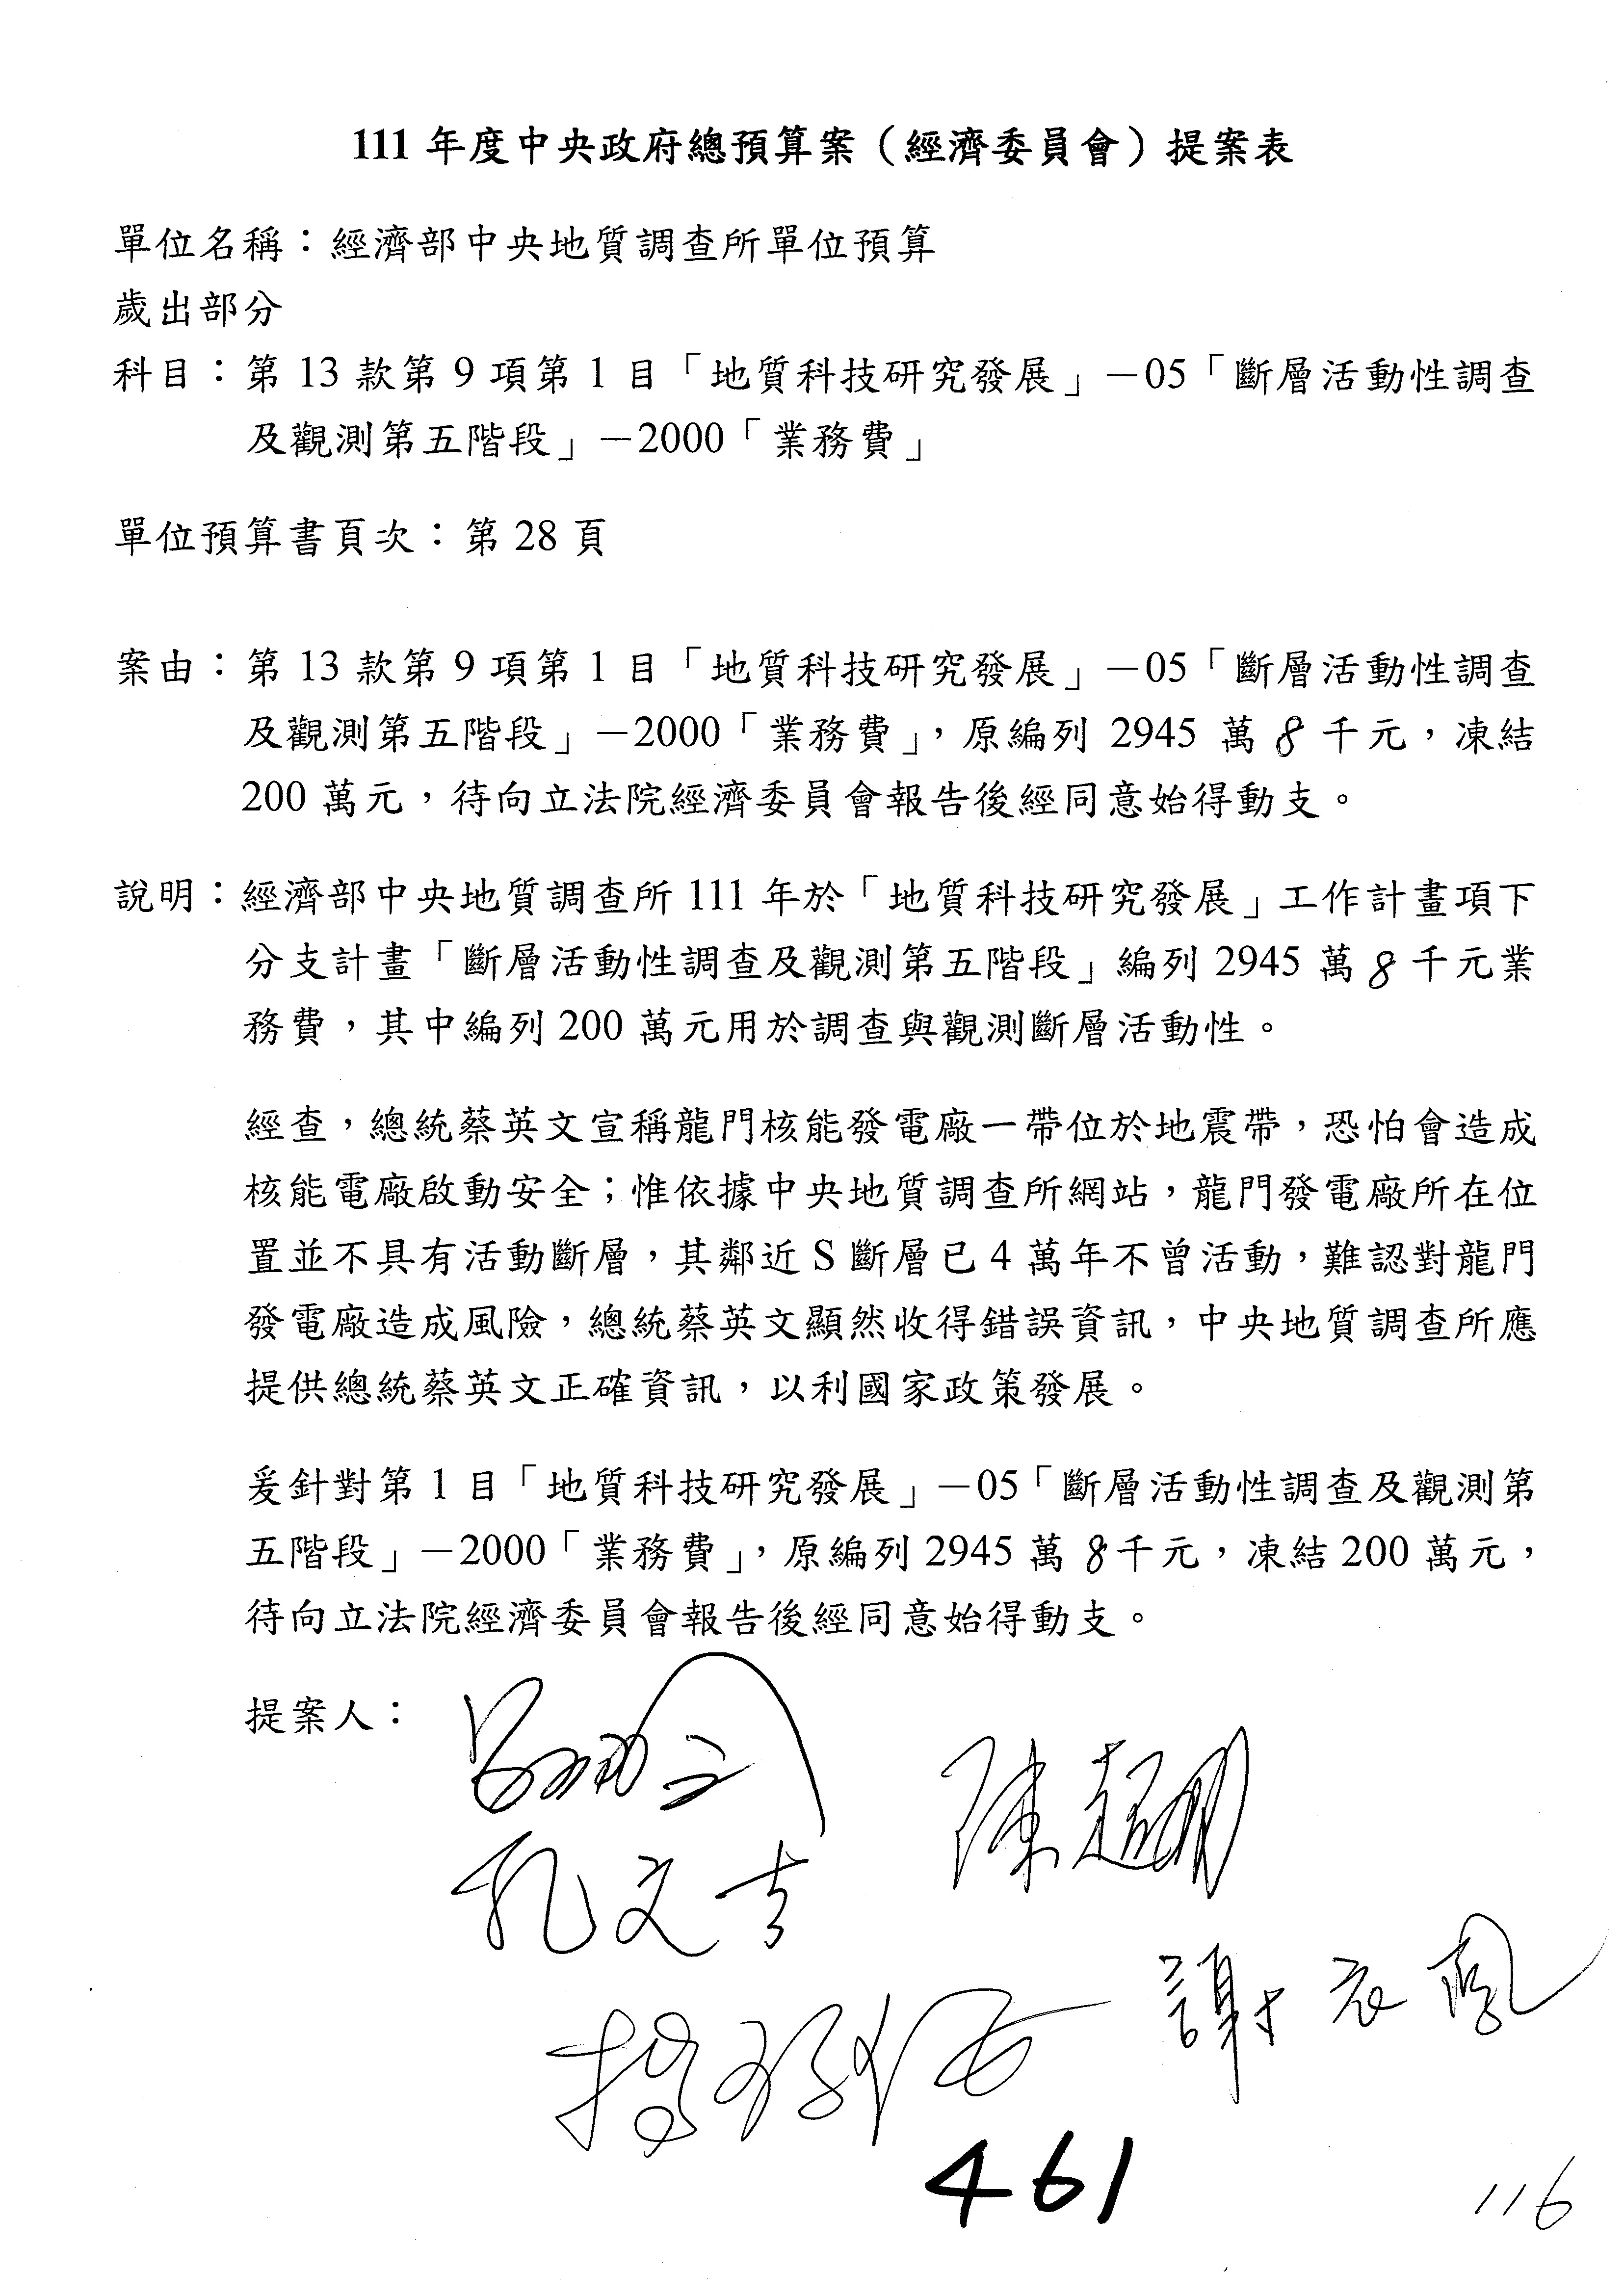 111 年度中央政府總預算案（經濟委員會）提案表
單位名稱：經濟部中央地質調查所單位預算
歲出部分
科目：第 13 款第 9 項第 1 目「地質科技研究發展」－05「斷層活動性調查
及觀測第五階段」－2000「業務費」
單位預算書頁次：第 28 頁
案由：第 13 款第 9 項第 1 目「地質科技研究發展」－05「斷層活動性調查
及觀測第五階段」－2000「業務費」，原編列 2945 萬 8 千元，凍結
200 萬元，待向立法院經濟委員會報告後經同意始得動支。
說明：經濟部中央地質調查所 111 年於「地質科技研究發展」工作計畫項下
分支計畫「斷層活動性調查及觀測第五階段」編列 2945 萬 8 千元業
務費，其中編列 200 萬元用於調查與觀測斷層活動性。
經查，總統蔡英文宣稱龍門核能發電廠一帶位於地震帶，恐怕會造成
核能電廠啟動安全；惟依據中央地質調查所網站，龍門發電廠所在位
置並不具有活動斷層，其鄰近 S 斷層已 4 萬年不曾活動，難認對龍門
發電廠造成風險，總統蔡英文顯然收得錯誤資訊，中央地質調查所應
提供總統蔡英文正確資訊，以利國家政策發展。
爰針對第 1 目「地質科技研究發展」－05「斷層活動性調查及觀測第
五階段」－2000「業務費」，原編列 2945 萬 8 千元，凍結 200 萬元，
待向立法院經濟委員會報告後經同意始得動支。
提案人：
孔文吉
謝衣鳳
461
116